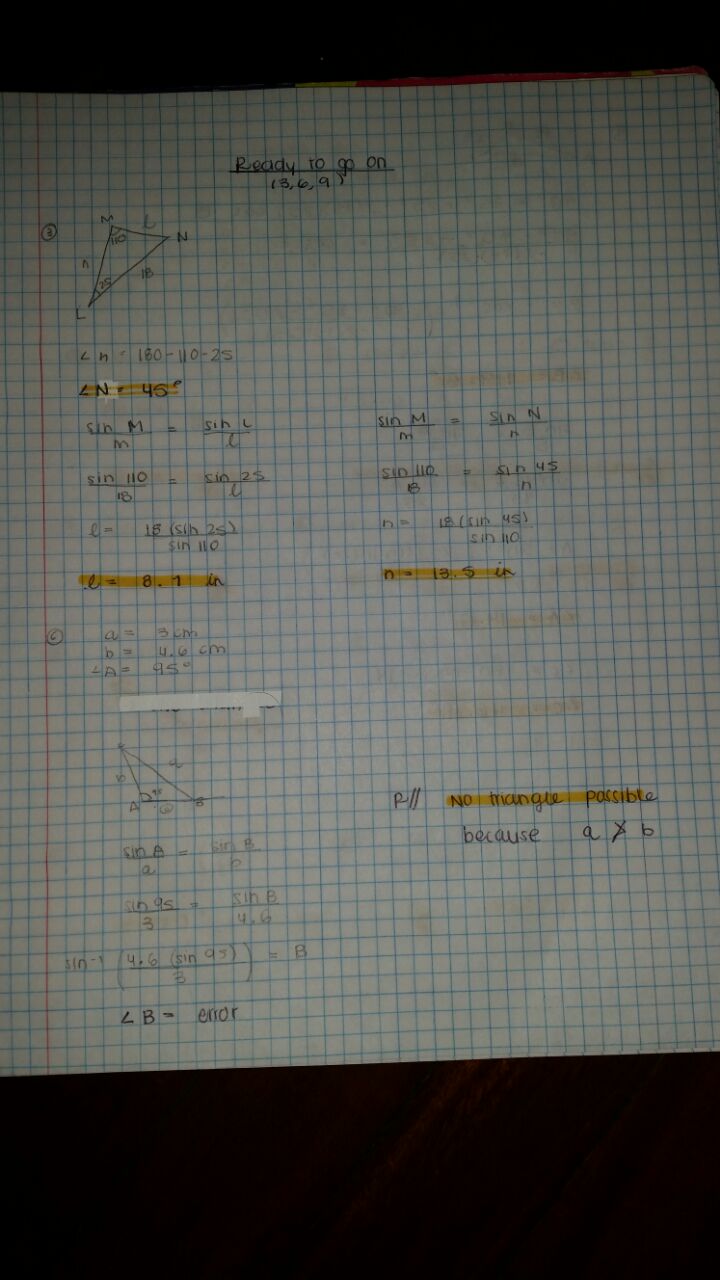 Ready to go on
(3, 6, 9)
③
M l
110 N
n 18
25
L
∠n = 180-110-25
∠N = 45°
sin M / m = sin L / l
sin 110 / 18 = sin 25 / l
l = 18 (sin 25) / sin 110
l = 8.1 in
sin M / m = sin N / n
sin 110 / 18 = sin 45 / n
n = 18 (sin 45) / sin 110
n = 13.5 in
⑥
a = 3 cm
b = 4.6 cm
∠A = 95°
b a
A 95 B
sin A / a = sin B / b
sin 95 / 3 = sin B / 4.6
sin⁻¹ (4.6 (sin 95) / 3) = B
∠B = error
R// No triangle possible
because a ≯ b